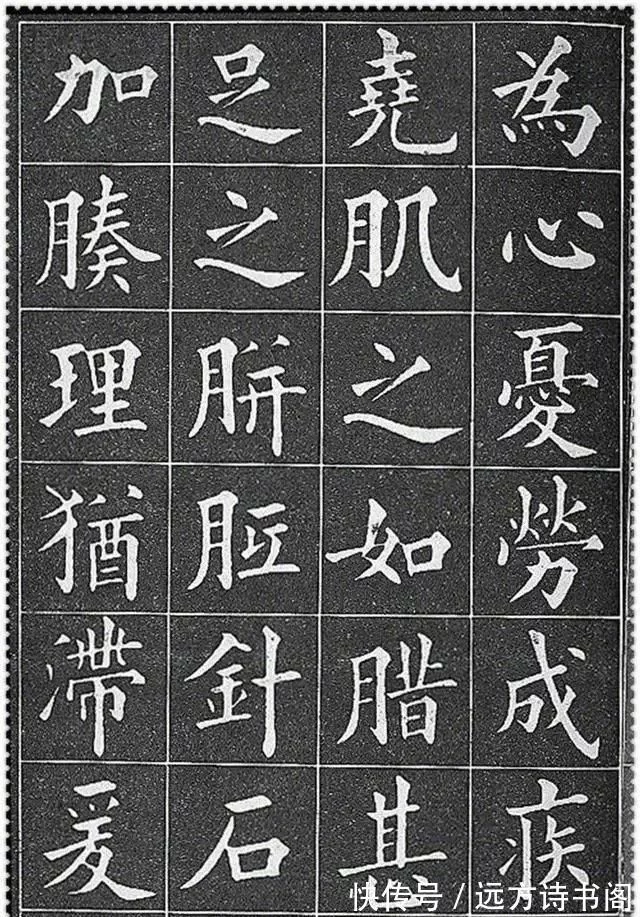 為心憂勞成疾
堯肌之如腊甚
足之胼胝針石
加腠理猶滯爰
快传号 / 远方诗书阁